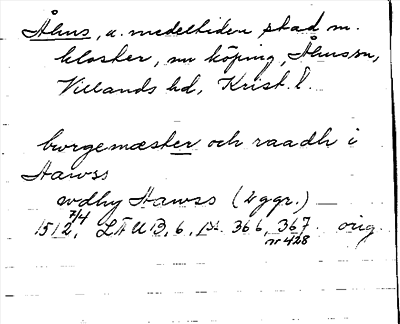 Åhus, u. medeltiden stad m.
kloster, nu köping, Åhus sn,
Villands hd, Krist. l.
borgemæster och raadh i
Hawss
wdhy Hawss (2 ggr.)
1512 7/4, LÄUB, 6, 366, 367. orig.
nr 428